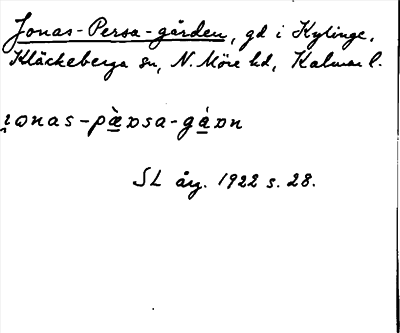 Jonas-Persa-gården, gd i Kylinge,
Kläckeberga sn, N. Möre hd, Kalmar l.
ɪonas-pæ̀ɒsa-gáɒn
SL årg. 1922 s. 28.